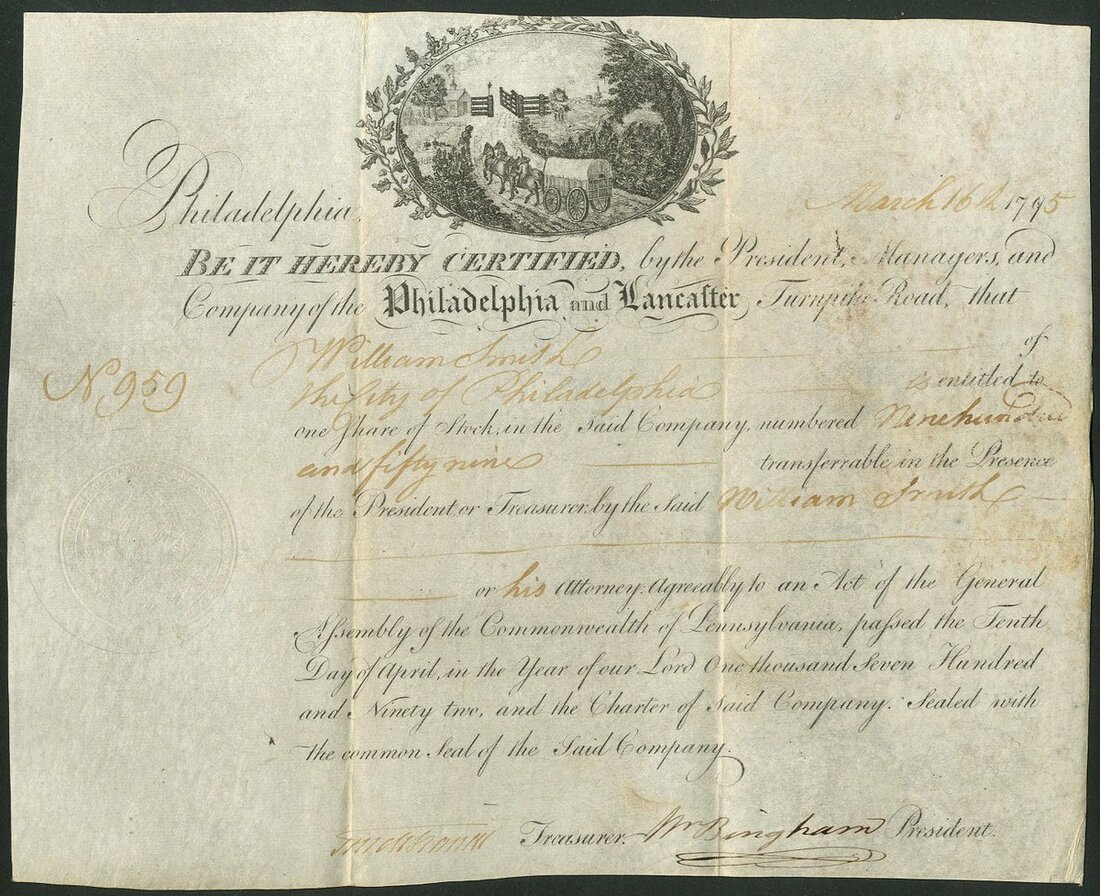 Philadelphia, March 16th 1795
BE IT HEREBY CERTIFIED, by the President, Managers, and
Company of the Philadelphia and Lancaster Turnpike Road, that
William Smith of
No 959
the City of Philadelphia is entitled to
one Share of Stock, in the Said Company, numbered Nine hundred
and fifty nine transferrable in the Presence
of the President or Treasurer, by the Said William Smith
or his Attorney. Agreeably to an Act of the General
Assembly of the Commonwealth of Pennsylvania, passed the Tenth
Day of April, in the Year of our Lord One thousand Seven Hundred
and Ninety two, and the Charter of Said Company. Sealed with
the common Seal of the Said Company.
Treasurer. Wm Bingham President.